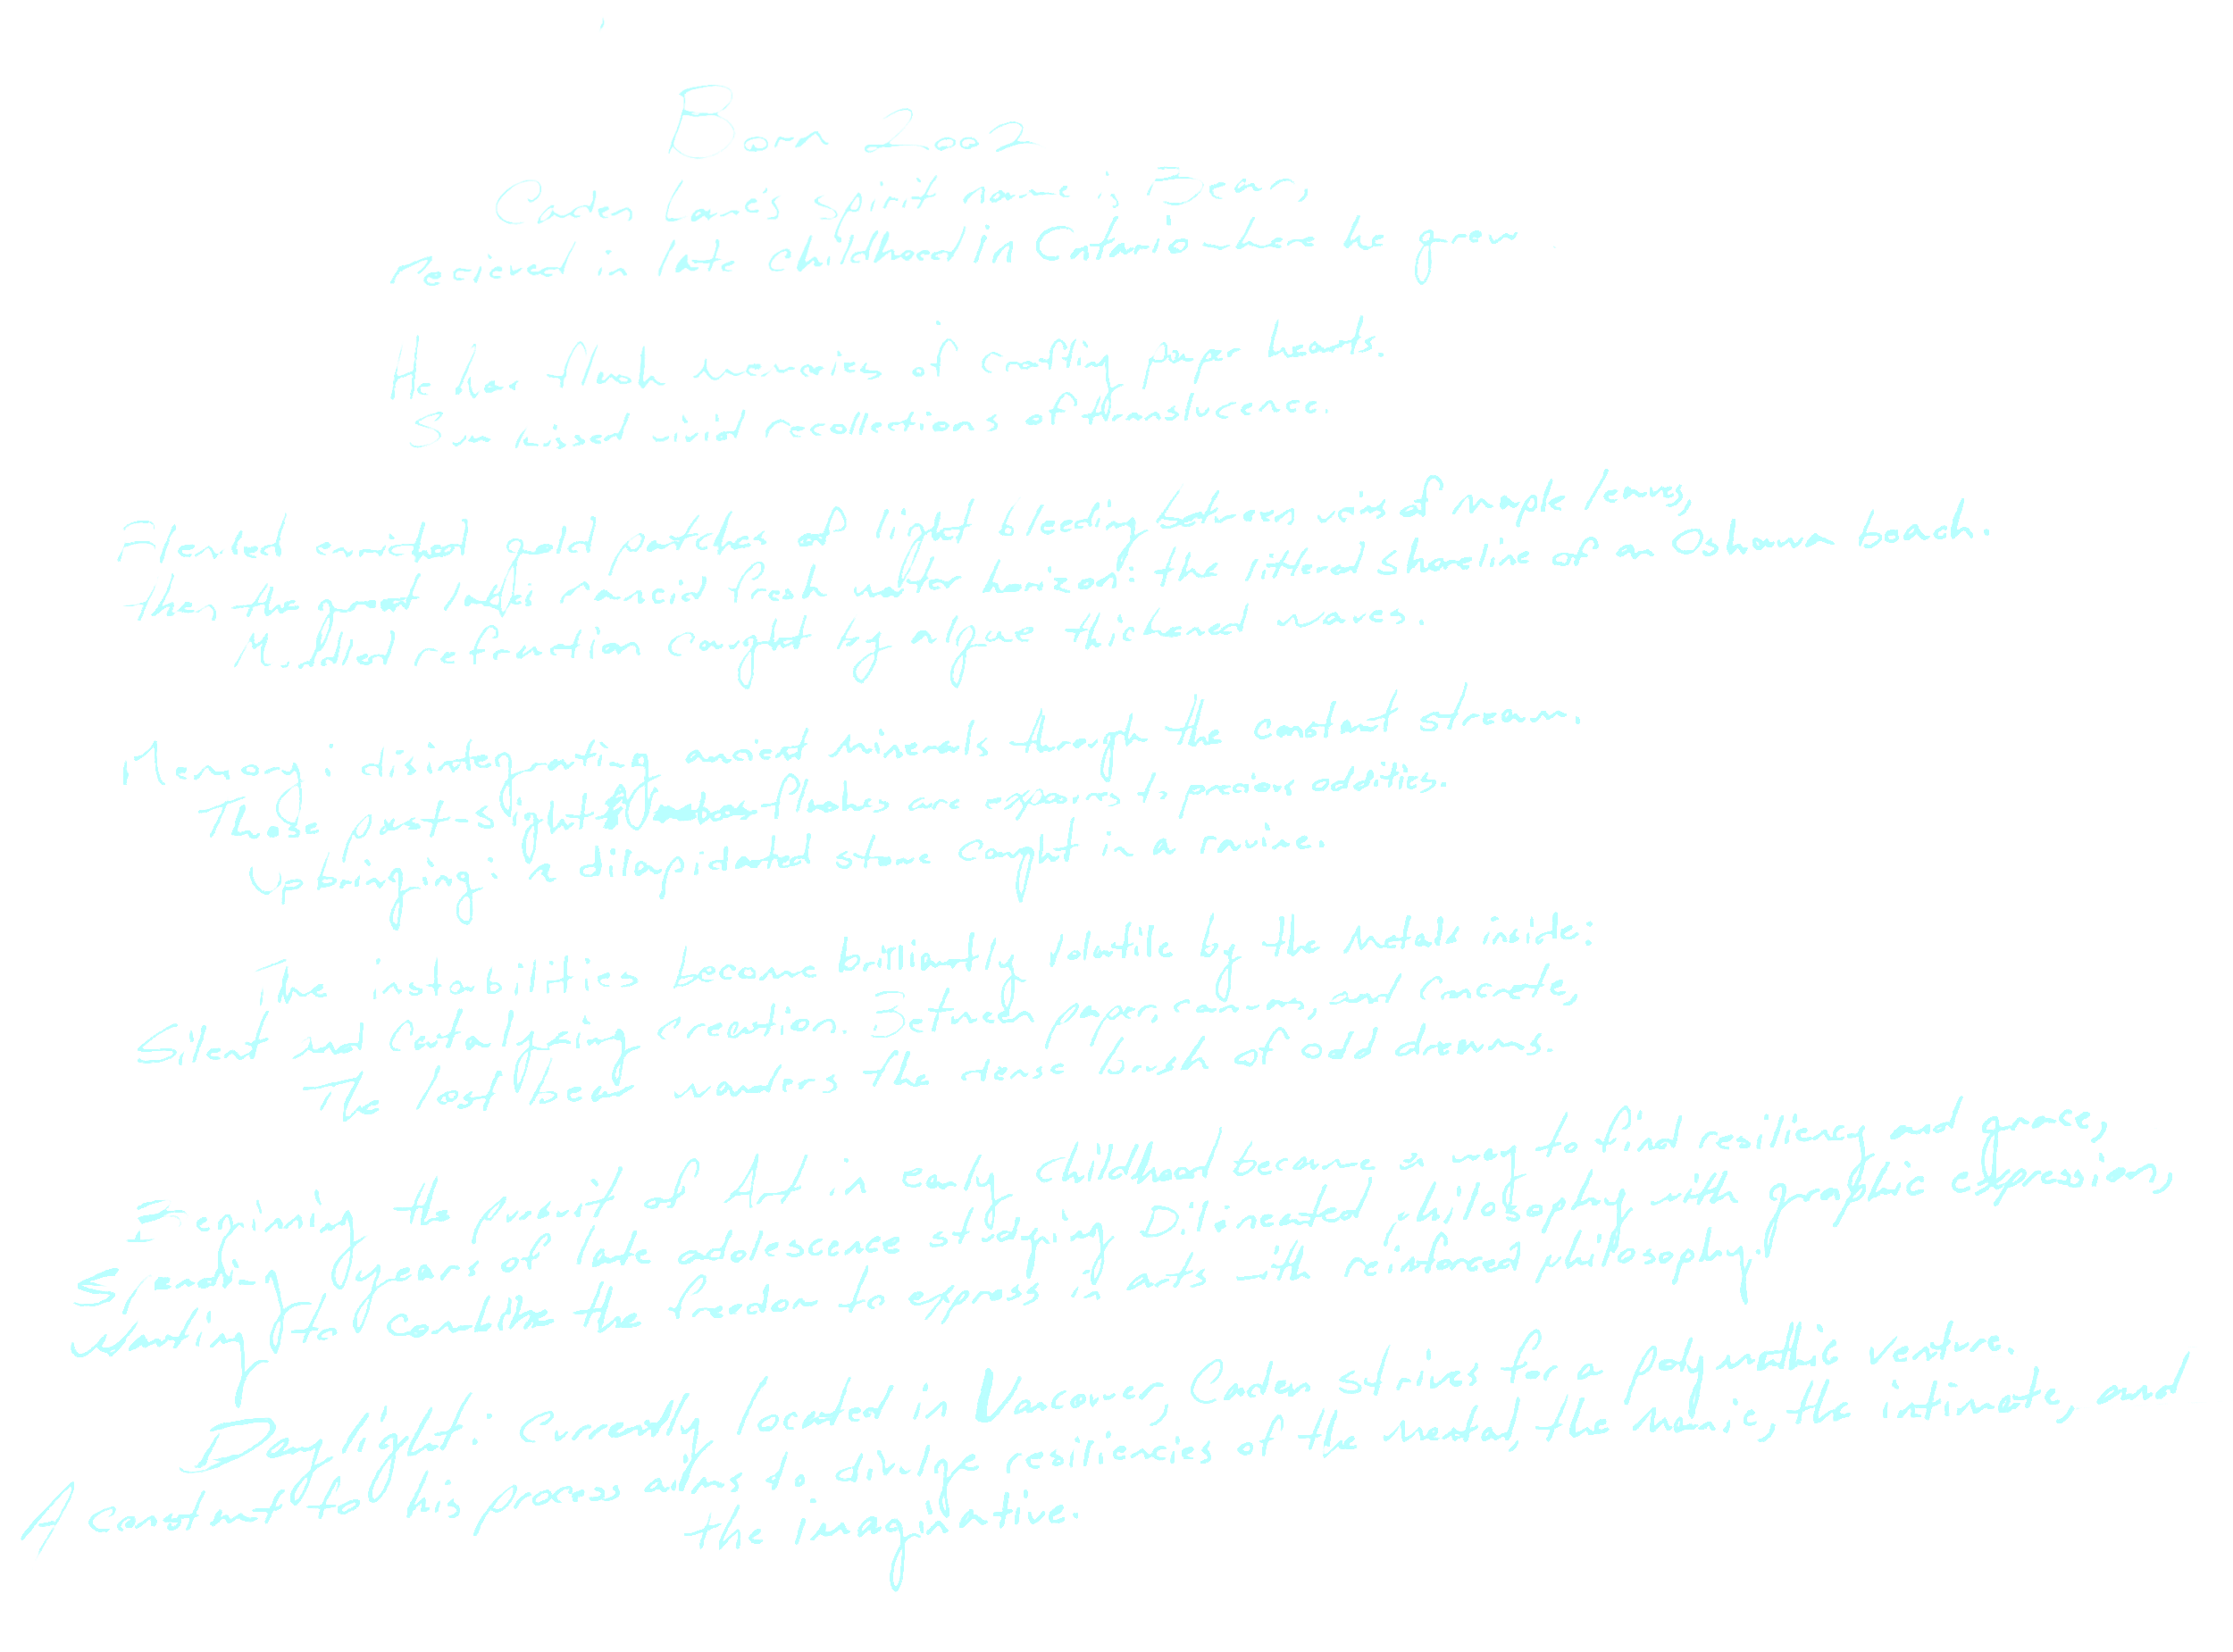 Born 2002
Caden Lane's spirit name is Bear,
recieved in late childhood in Ontario where he grew.
He has flash memories of crafting paper beads.
Sun kissed vivid recollections of translucence.
Blanched emerald and patches of light bleeding between veins of maple leaves,
then, the good relief in moist flesh under horizon: the literal shoreline of a Oshawa beach.
Mulled refraction caught by algae thickened waves.
Memory: disintegrating ancient minerals through the constant stream.
Those past-sight flashes are exposed to precious oddities.
Upbringing: a dilapidated stone caught in a ravine.
The instabilities became brilliantly volatile by the untold inside:
Silent and Catalyzing creation. Between paper, canvas, and concrete,
The lost bear wanders the dense brush of old dreams.
Beginning the pursuit of Art in early childhood became a way to find resiliency and grace,
Spending years of late adolescence studying Dilineated philosophy with graphic expression,
wanting to combine the freedom to express in arts with reinforced philosophy.
Daylight: Currently located in Vancouver, Caden strives for a polymathic venture.
A constant to his process aims to divulge resiliencies of the mental, the manic, the intimate, and
the imaginative.